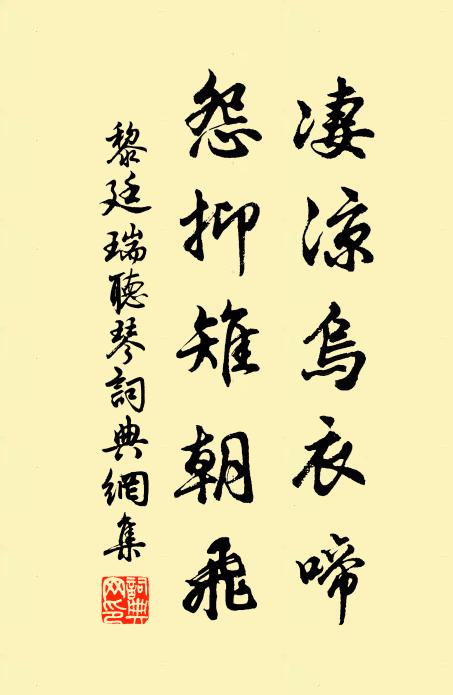 凄涼烏衣啼
怨抑雉朝飛
黎廷瑞聽琴詞典網集
詞典網印